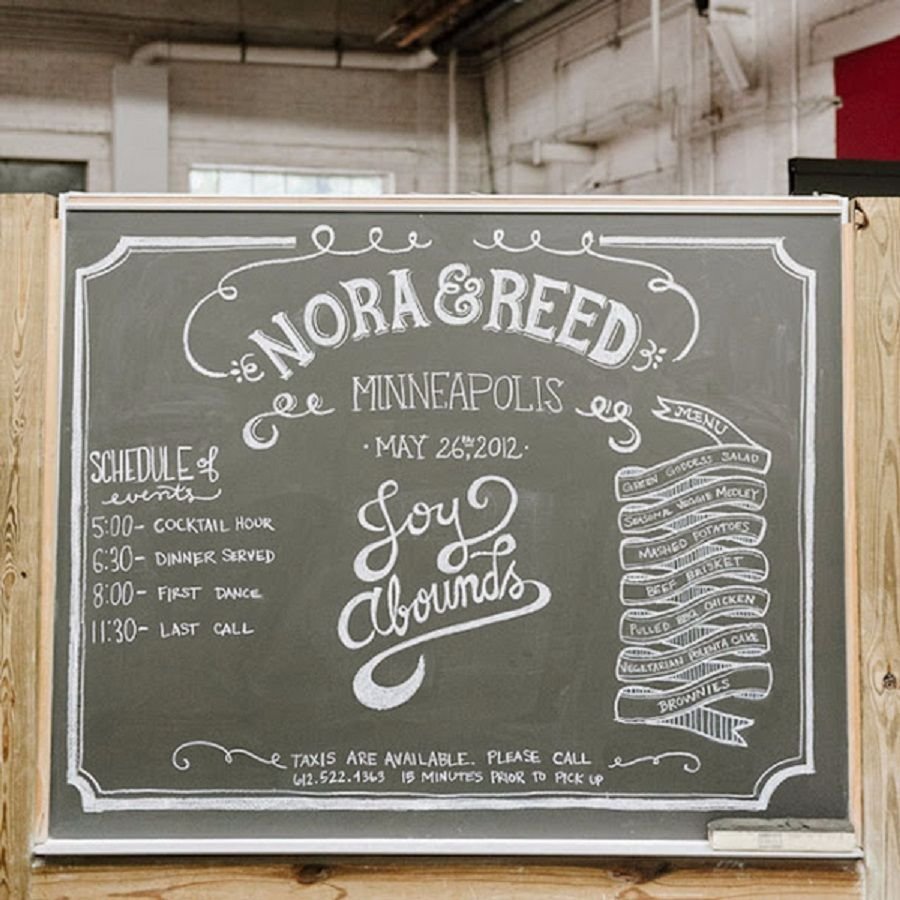 NORA & REED
MINNEAPOLIS
· MAY 26TH, 2012 ·
Joy
Abounds
SCHEDULE of
events
5:00 - COCKTAIL HOUR
6:30 - DINNER SERVED
8:00 - FIRST DANCE
11:30 - LAST CALL
MENU
GREEN GODDESS SALAD
SEASONAL VEGGIE MEDLEY
MASHED POTATOES
BEEF BRISKET
PULLED BBQ CHICKEN
VEGETARIAN POLENTA CAKE
BROWNIES
TAXIS ARE AVAILABLE. PLEASE CALL
612.522.4363 15 MINUTES PRIOR TO PICK UP